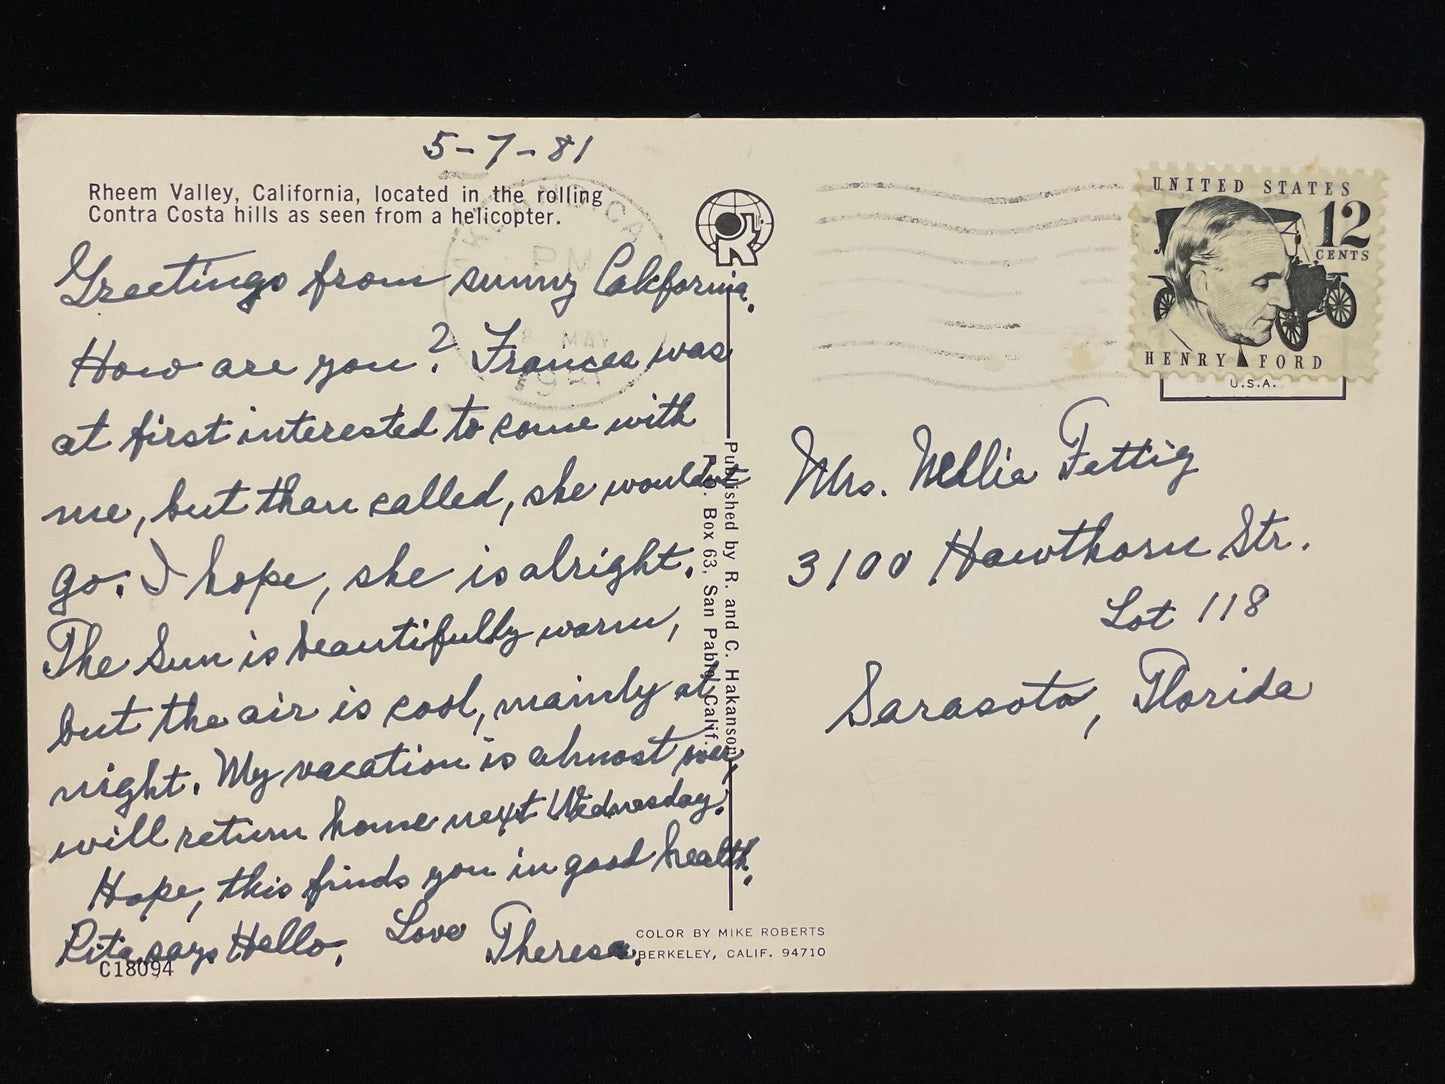 5-7-81
Rheem Valley, California, located in the rolling
Contra Costa hills as seen from a helicopter.
Greetings from sunny California.
How are you? Frances was
at first interested to come with
me, but than called, she wouldn't
go. I hope, she is alright.
The Sun is beautifully warm,
but the air is cool, mainly at
night. My vacation is almost over,
will return home next Wednesday.
Hope, this finds you in good health.
Rita says Hello. Love Theresa.
C18094
PM
MAY
1981
Published by R. and C. Hakanson
P.O. Box 63, San Pablo, Calif.
COLOR BY MIKE ROBERTS
BERKELEY, CALIF. 94710
UNITED STATES
12
CENTS
HENRY FORD
U.S.A.
Mrs. Nellie Fettig
3100 Hawthorn Str.
Lot 118
Sarasota, Florida